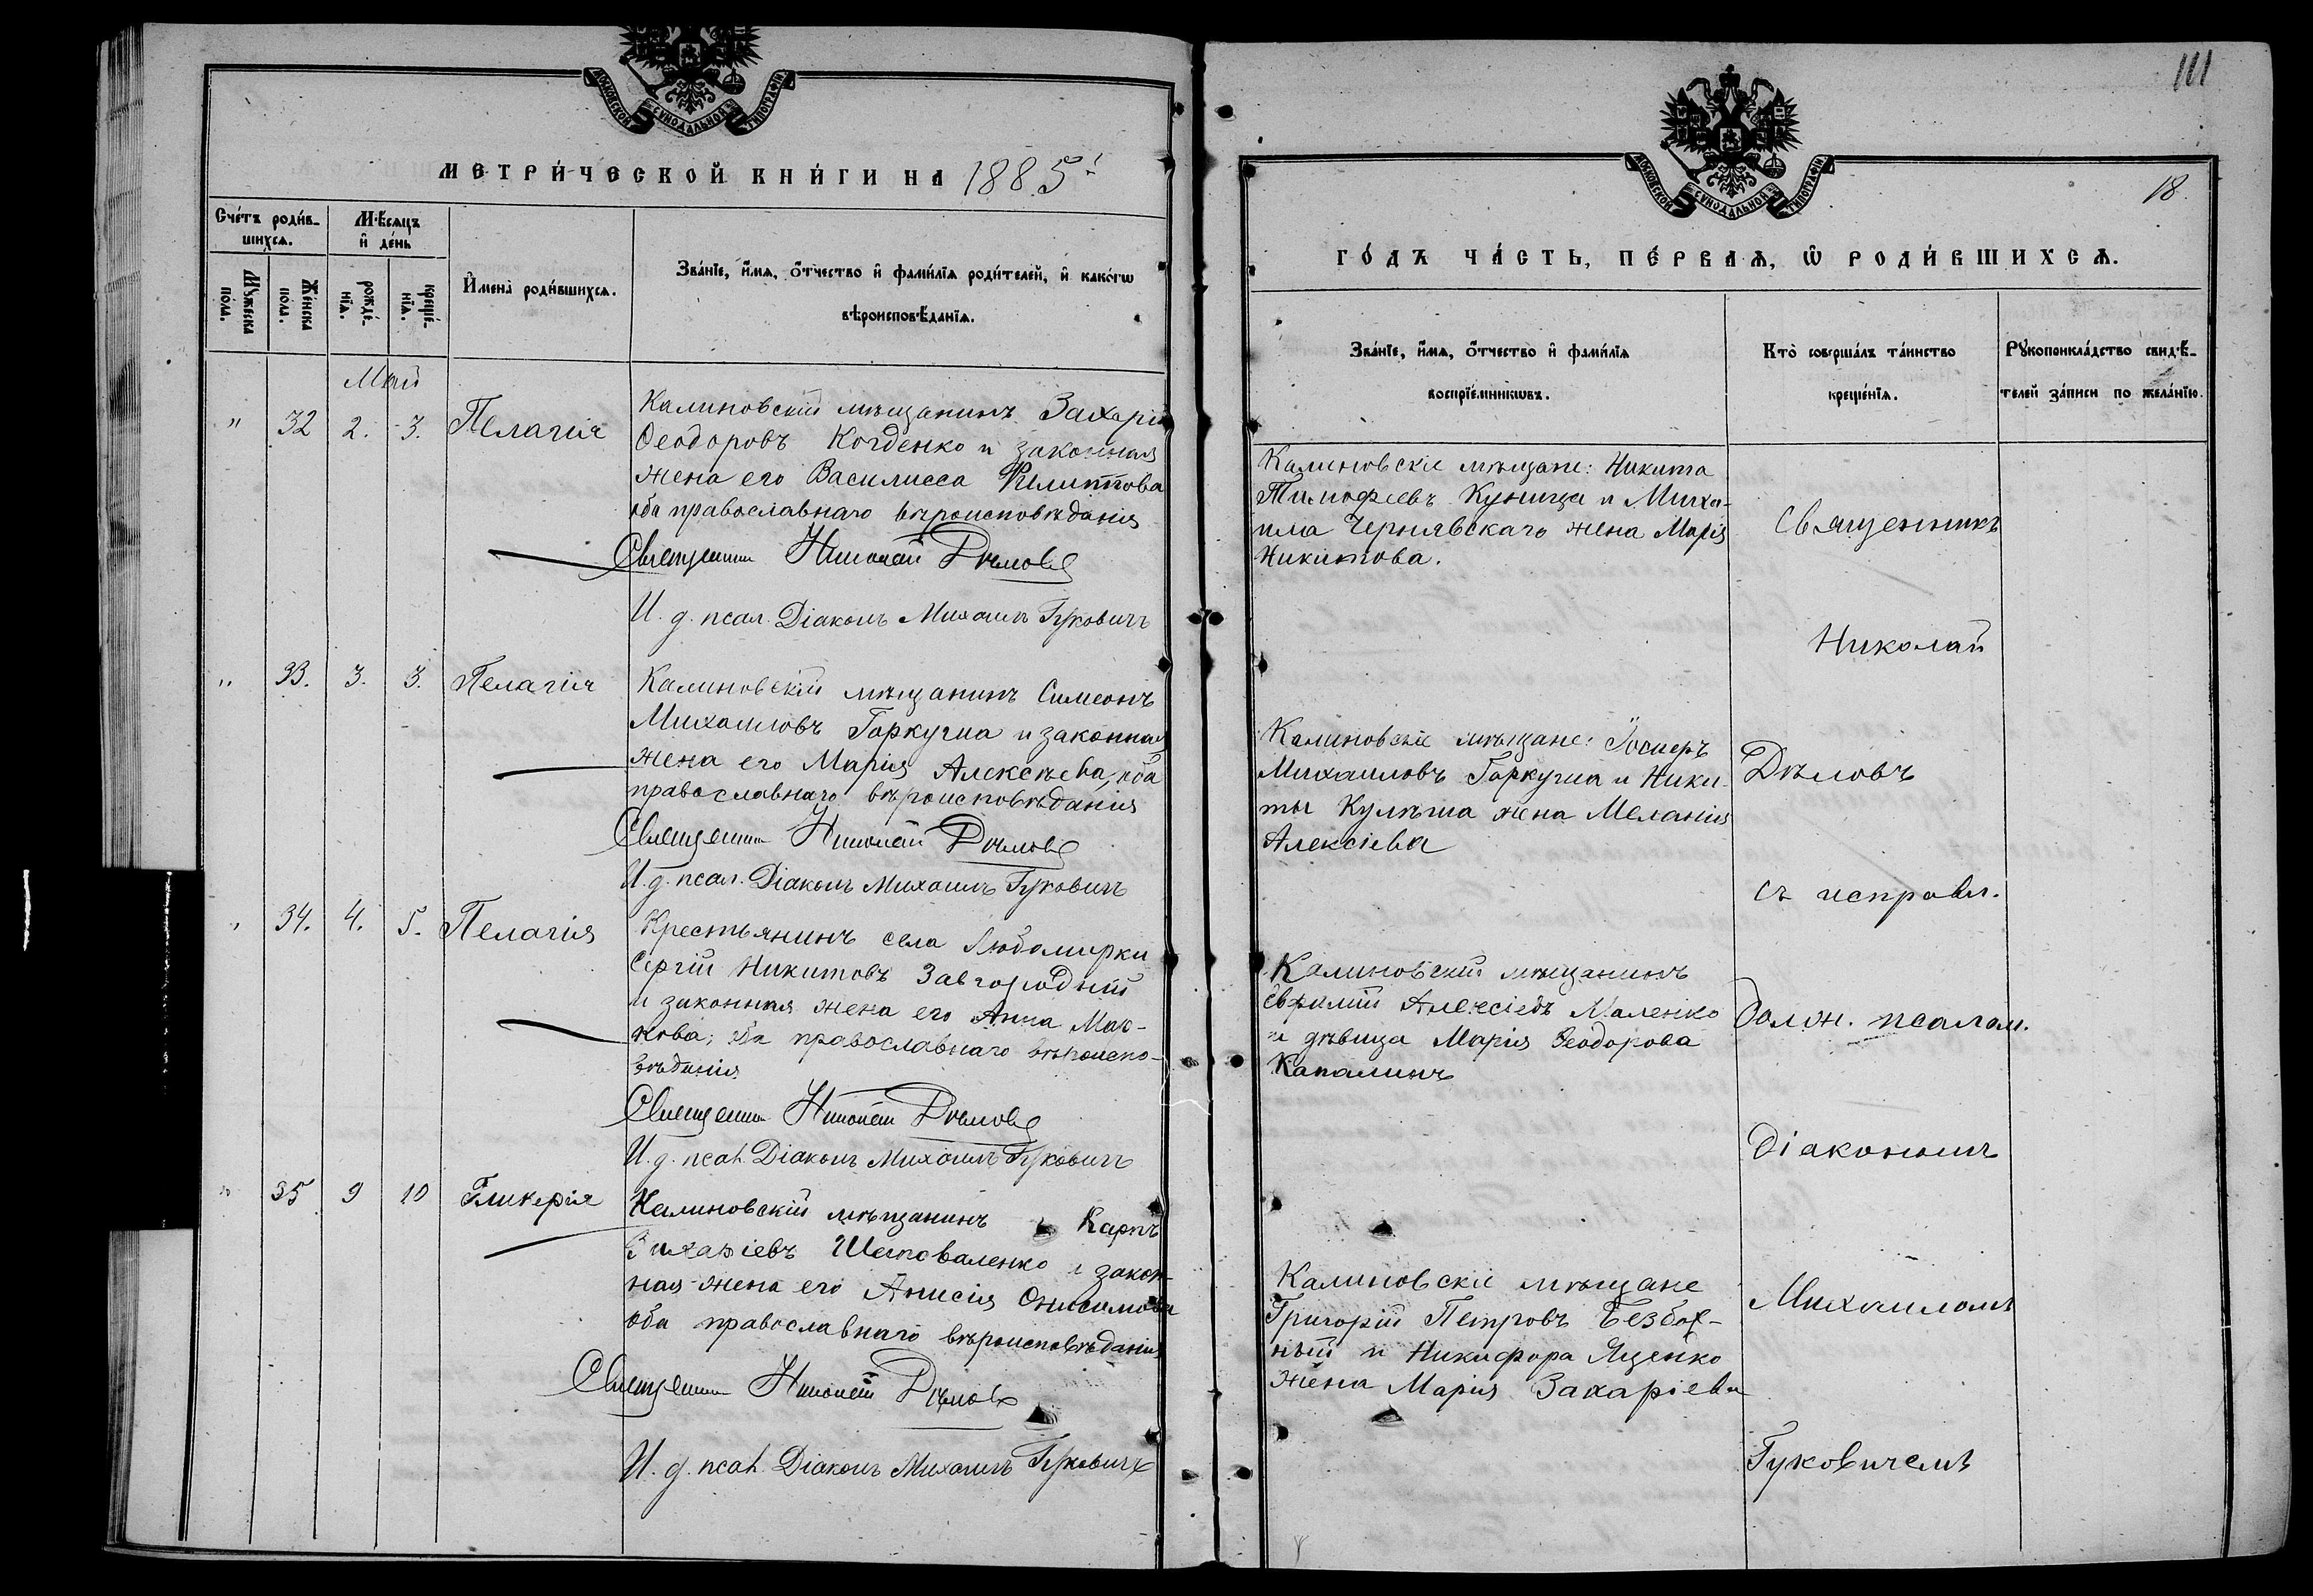 МОСКОВСКОЙ СѴНОДАЛЬНОЙ ТИПОГРАФІИ
МЕТРИ́ЧЕСКОЙ КНИ́ГИ НА 1885
Сче́тъ роди́в-
шихсѧ.
Мѣ́сѧцъ
и҆ де́нь
Мꙋ́жеска
по́ла.
Же́нска
по́ла.
рожде́-
нїѧ.
креще́-
нїѧ.
И҆мена̀ роди́вшихсѧ.
Зва́нїе, и҆́мѧ, ѻ҆́тчество и҆ фами́лїѧ роди́телей, и҆ како́гѡ
вѣроисповѣ́данїѧ.
Май
" 32 2. 3. Пелагія
Калиновскій мѣщанинъ Захарій
Ѳеодоровъ Когденко и законная
жена его Василисса Филиппова
оба православнаго вѣроисповѣданія
Священникъ Николай Дѣловъ
И. д. псал. Діаконъ Михаилъ Гуковичъ
" 33. 3. 3. Пелагія
Калиновскій мѣщанинъ Симеонъ
Михаиловъ Гаркуша и законная
жена его Марія Алексѣева, оба
православнаго вѣроисповѣданія
Священникъ Николай Дѣловъ
И. д. псал. Діаконъ Михаилъ Гуковичъ
" 34. 4. 5. Пелагія
Крестьянинъ села Любомирки
Сергій Никитовъ Завгородній
и законная жена его Анна Мар-
кова; оба православнаго вѣроиспо-
вѣданія
Священникъ Николай Дѣловъ
И. д. псал. Діаконъ Михаилъ Гуковичъ
" 35 9 10 Гликерія
Калиновскій мѣщанинъ Карпъ
Захаріевъ Шаповаленко и закон-
ная жена его Анисія Онисимова
оба православнаго вѣроисповѣданія
Священникъ Николай Дѣловъ
И. д. псал. Діаконъ Михаилъ Гуковичъ
111
МОСКОВСКОЙ СѴНОДАЛЬНОЙ ТИПОГРАФІИ
18.
ГО́ДЪ ЧА́СТЬ, ПЕ́РВАѦ, Ѡ҆ РОДИ́ВШИХСѦ.
Зва́нїе, и҆́мѧ, ѻ҆́тчество и҆ фами́лїѧ
воспрїе́мникѡвъ.
Кто̀ соверша́лъ та́инство
креще́нїѧ.
Рꙋкоприкла́дство свидѣ́-
телей за́писи по жела́нїю.
Калиновскіе мѣщане: Никита
Тимофеевъ Куница и Миха-
ила Чернявскаго жена Марія
Никитова.
Калиновскіе мѣщане: Іосифъ
Михаиловъ Гаркуша и Ники-
ты Кулѣша жена Меланія
Алексіева
Калиновскій мѣщанинъ
Евфимій Алексіевъ Маленко
и дѣвица Марія Ѳеодорова
Капалинъ
Калиновскіе мѣщане
Григорій Петровъ Безбож-
ный и Никифора Яценко
жена Марія Захаріева
Священникъ
Николай
Дѣловъ
съ исправл.
долж. псалом.
Діакономъ
Михаиломъ
Гуковичемъ